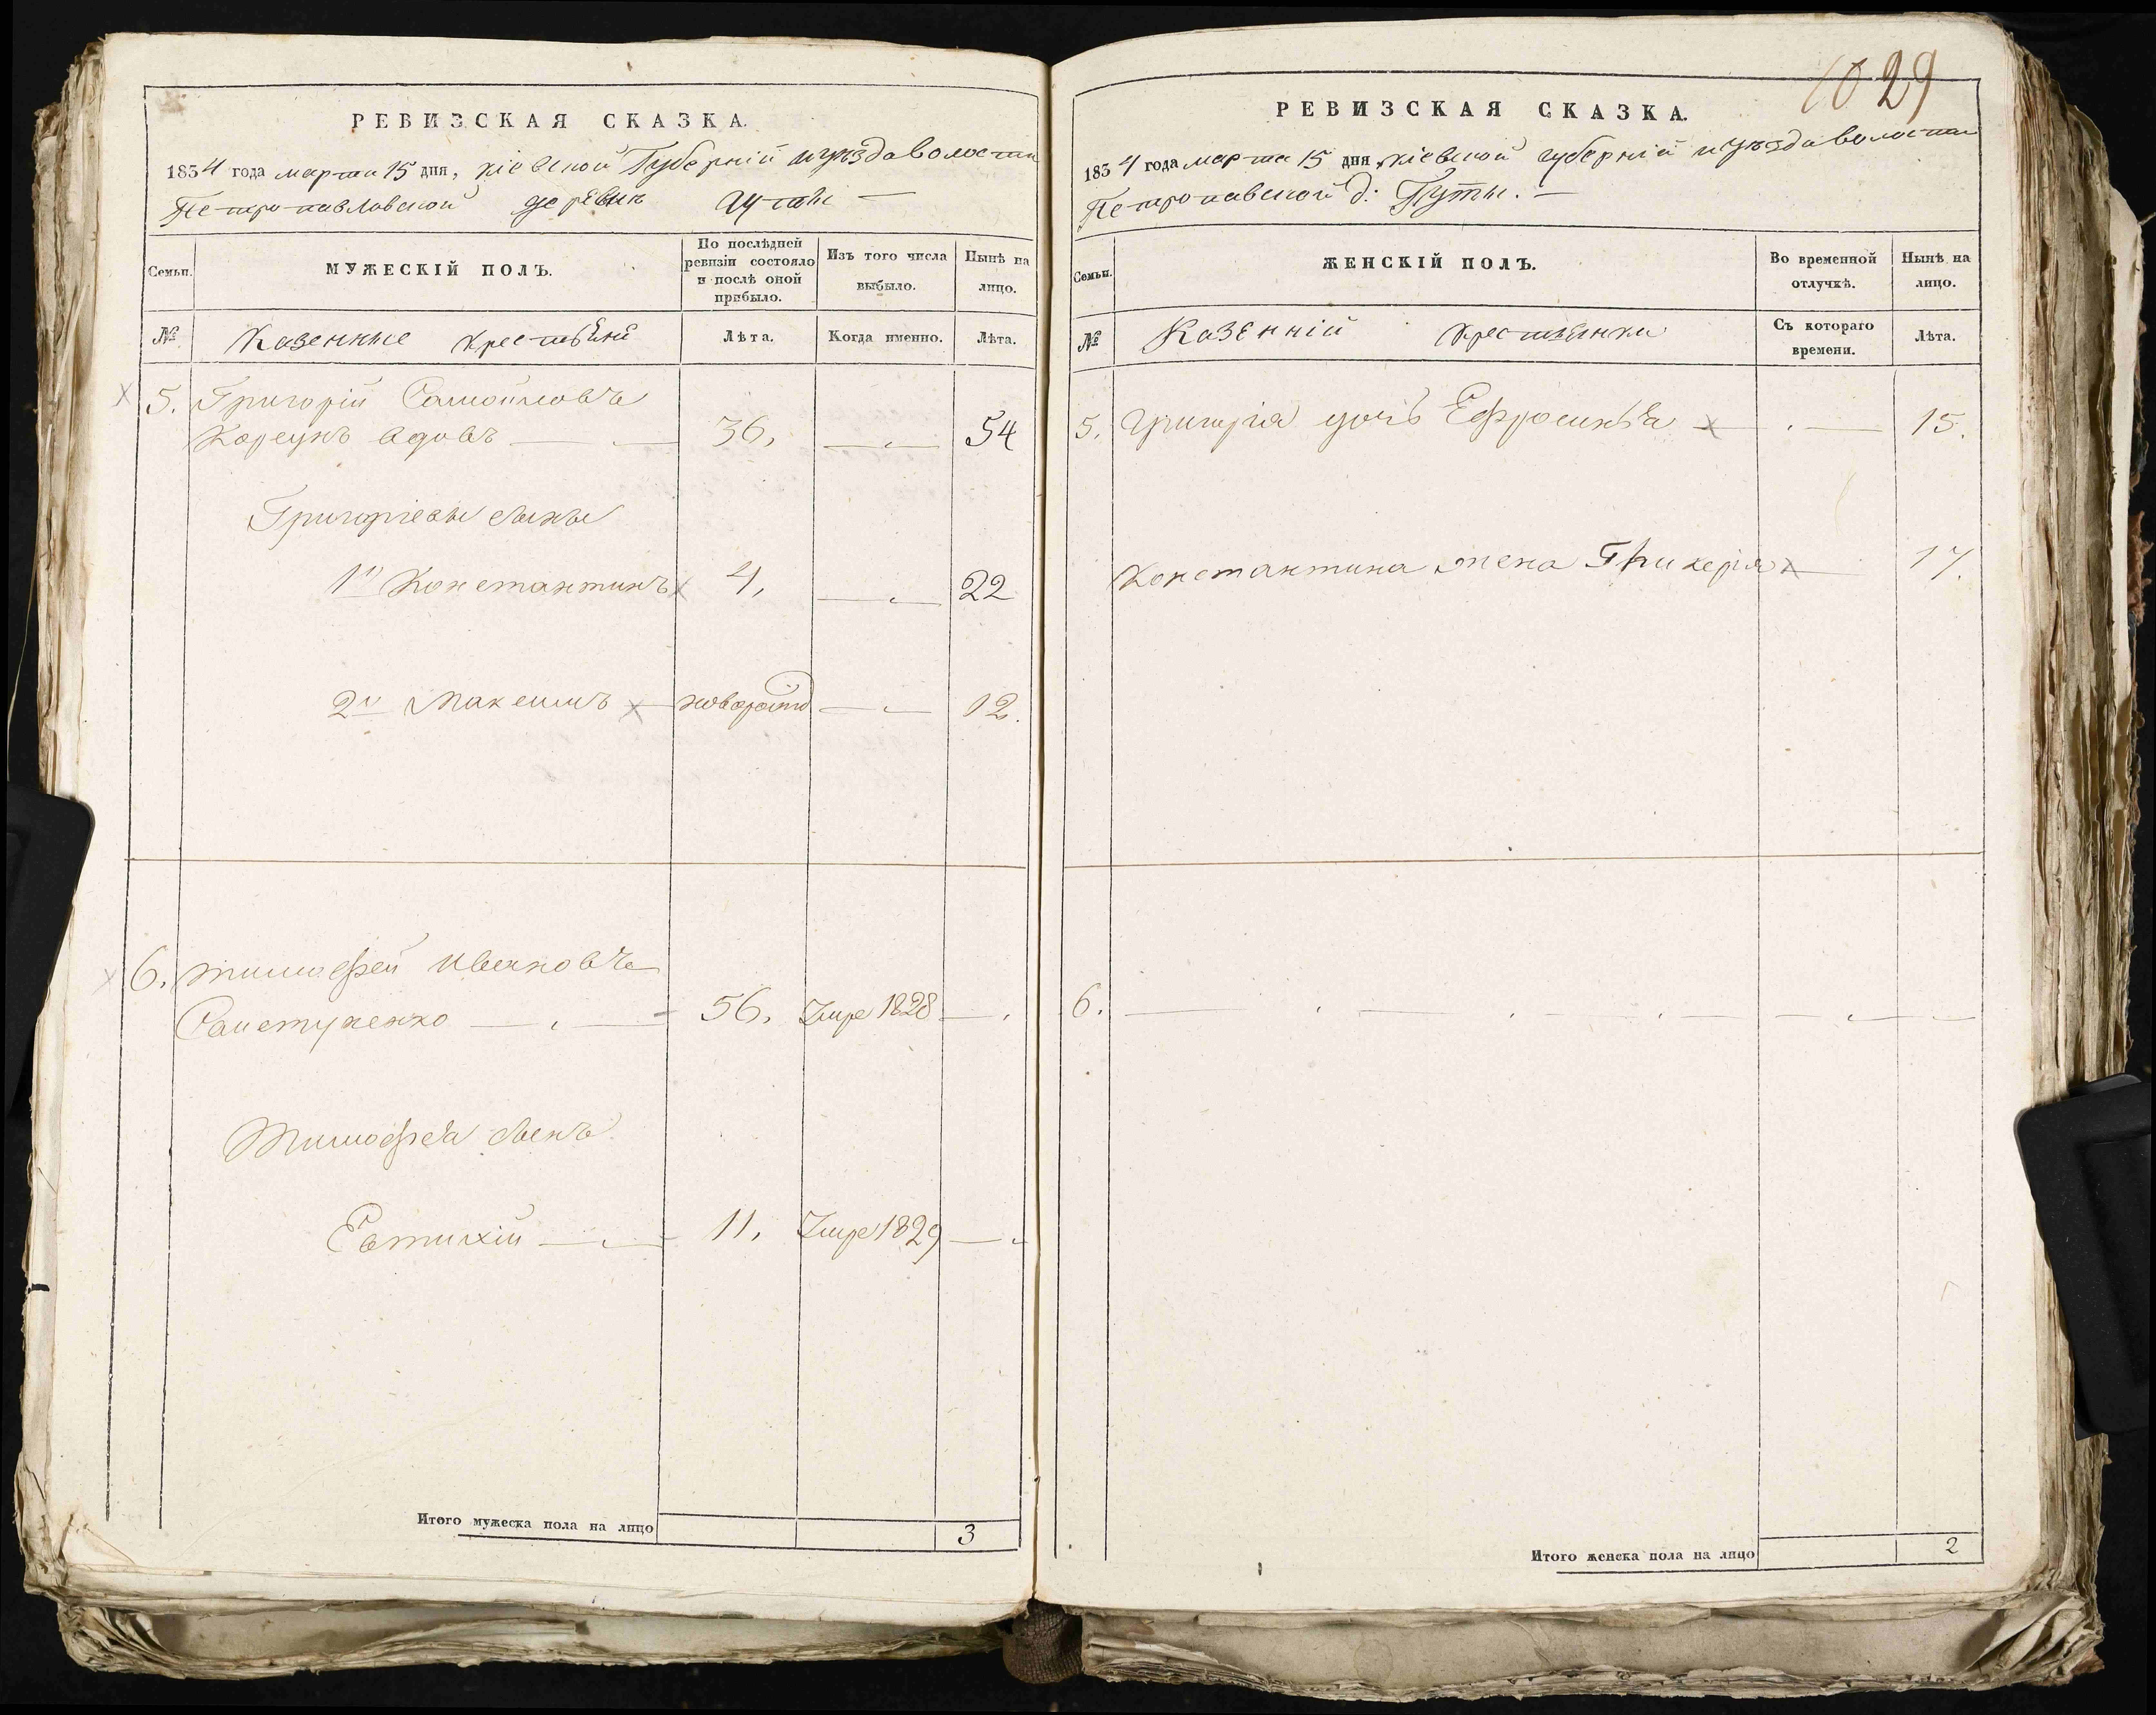 РЕВИЗСКАЯ СКАЗКА.
1834 года марта 15 дня, кіевской Губерній и уѣзда волости
Петропавловской деревни Гуты —
Семьи.
МУЖЕСКІЙ ПОЛЪ.
По послѣдней ревизіи состояло и послѣ оной прибыло.
Изъ того числа выбыло.
Нынѣ на лицо.
№
Казенные крестьяне
Лѣта.
Когда именно.
Лѣта.
5. Григорій Самойловъ
Корсунъ вдовъ — 36, — 54
Григорьевы сыны
1й Константинъ 4, — 22
2й Максимъ новорожд — 12.
6. тимофей Ивановъ
56, Умре 1828 —
Тимофея сынъ
Евтихій — 11, Умре 1829 —
Итого мужеска пола на лицо
3
10 29
РЕВИЗСКАЯ СКАЗКА.
1834 года марта 15 дня, кіевской губерній и уѣзда волости
Петропавской д: Гуты. —
Семьи.
ЖЕНСКІЙ ПОЛЪ.
Во временной отлучкѣ.
Нынѣ на лицо.
№
Казенній крестьянки
Съ котораго времени.
Лѣта.
5. Григорія дочь Ефросинья — 15.
Константина жена Гликерія — 17.
6. —
Итого женска пола на лицо
2